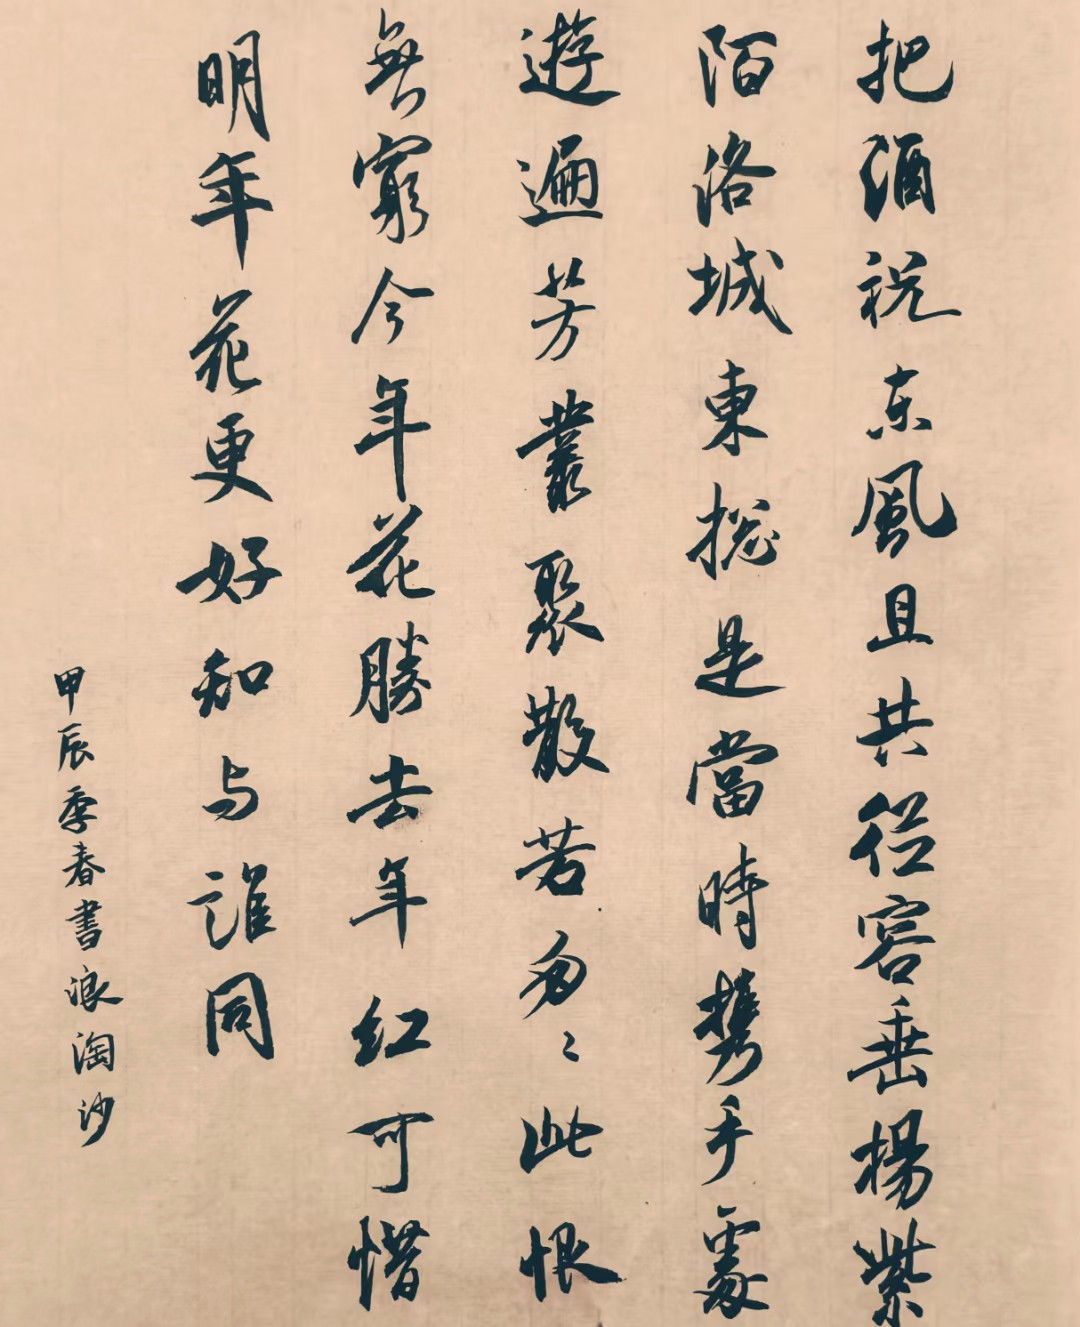 把酒祝东風且共從容垂楊紫
陌洛城東揔是當時携手處
遊遍芳叢聚散苦匆〻此恨
無窮今年花勝去年红可惜
明年花更好知与誰同
甲辰季春書浪淘沙